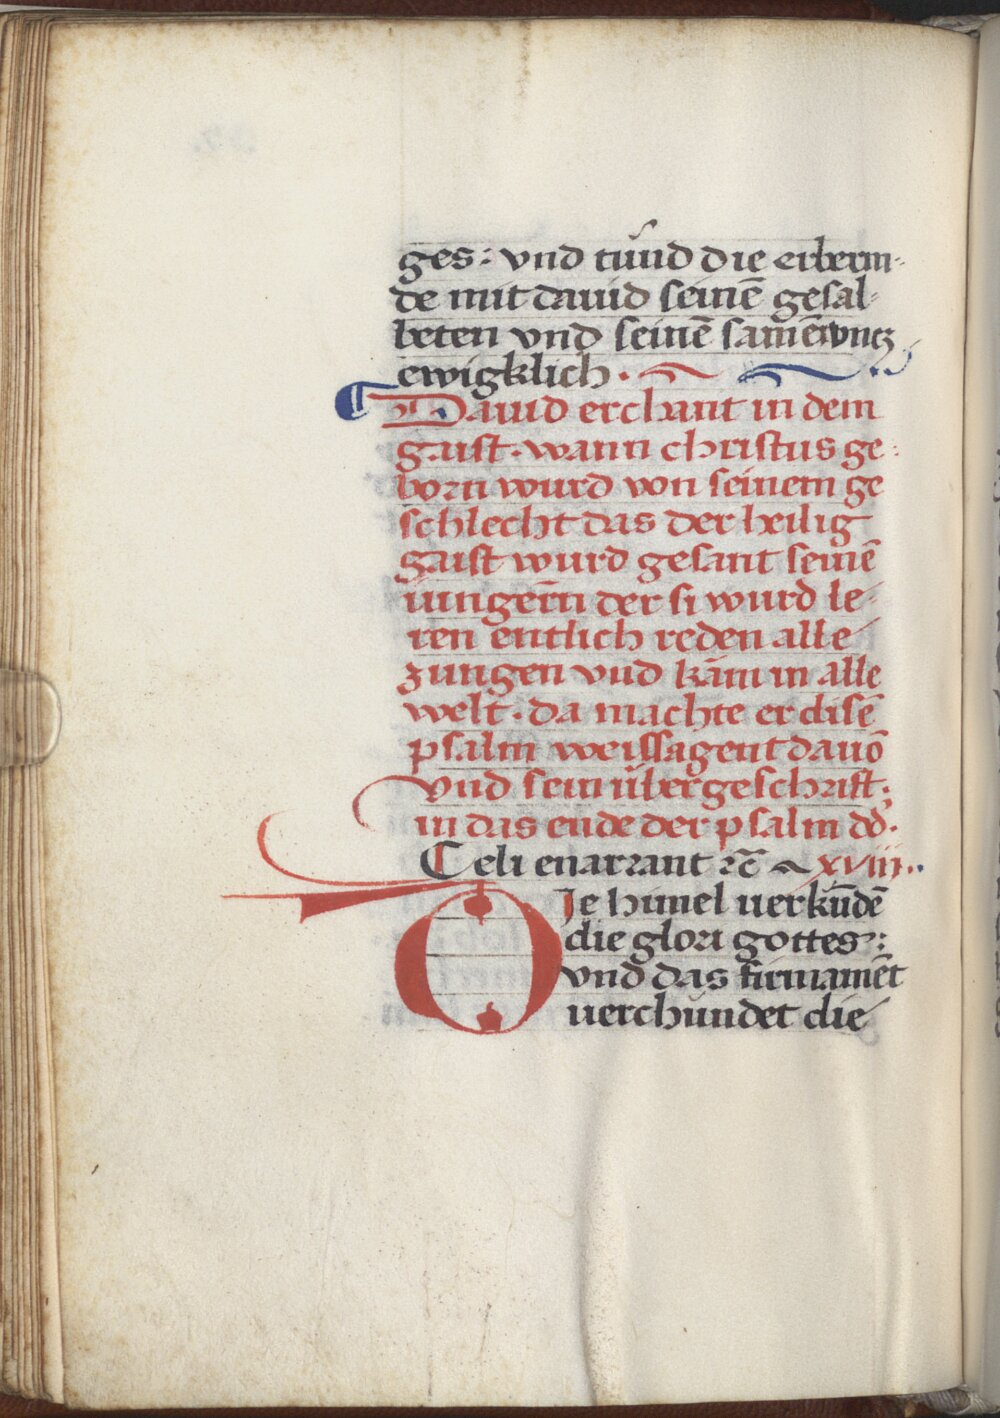 ges : vnd tůnd die erberm-
de mit dauid seinē gesal-
beten vnd seinē samē vncz
ewigklich .
Dauid erchant in dem
gaist · wann christus ge-
born wurd von seinem ge
schlecht das der heilig
gaist wurd gesant seinē
iungern der si wurd le-
ren entlich reden alle
zungen vnd kām in alle
welt · da machte er disē
psalm weissagent dauō
vnd sein übergeschrift :
in das ende der psalm dd ·
Celi enarrant ꝛc̄ xviij ·
DIe himel uerkündē
die glori gottes :
vnd das firmamēt
uerchündet die